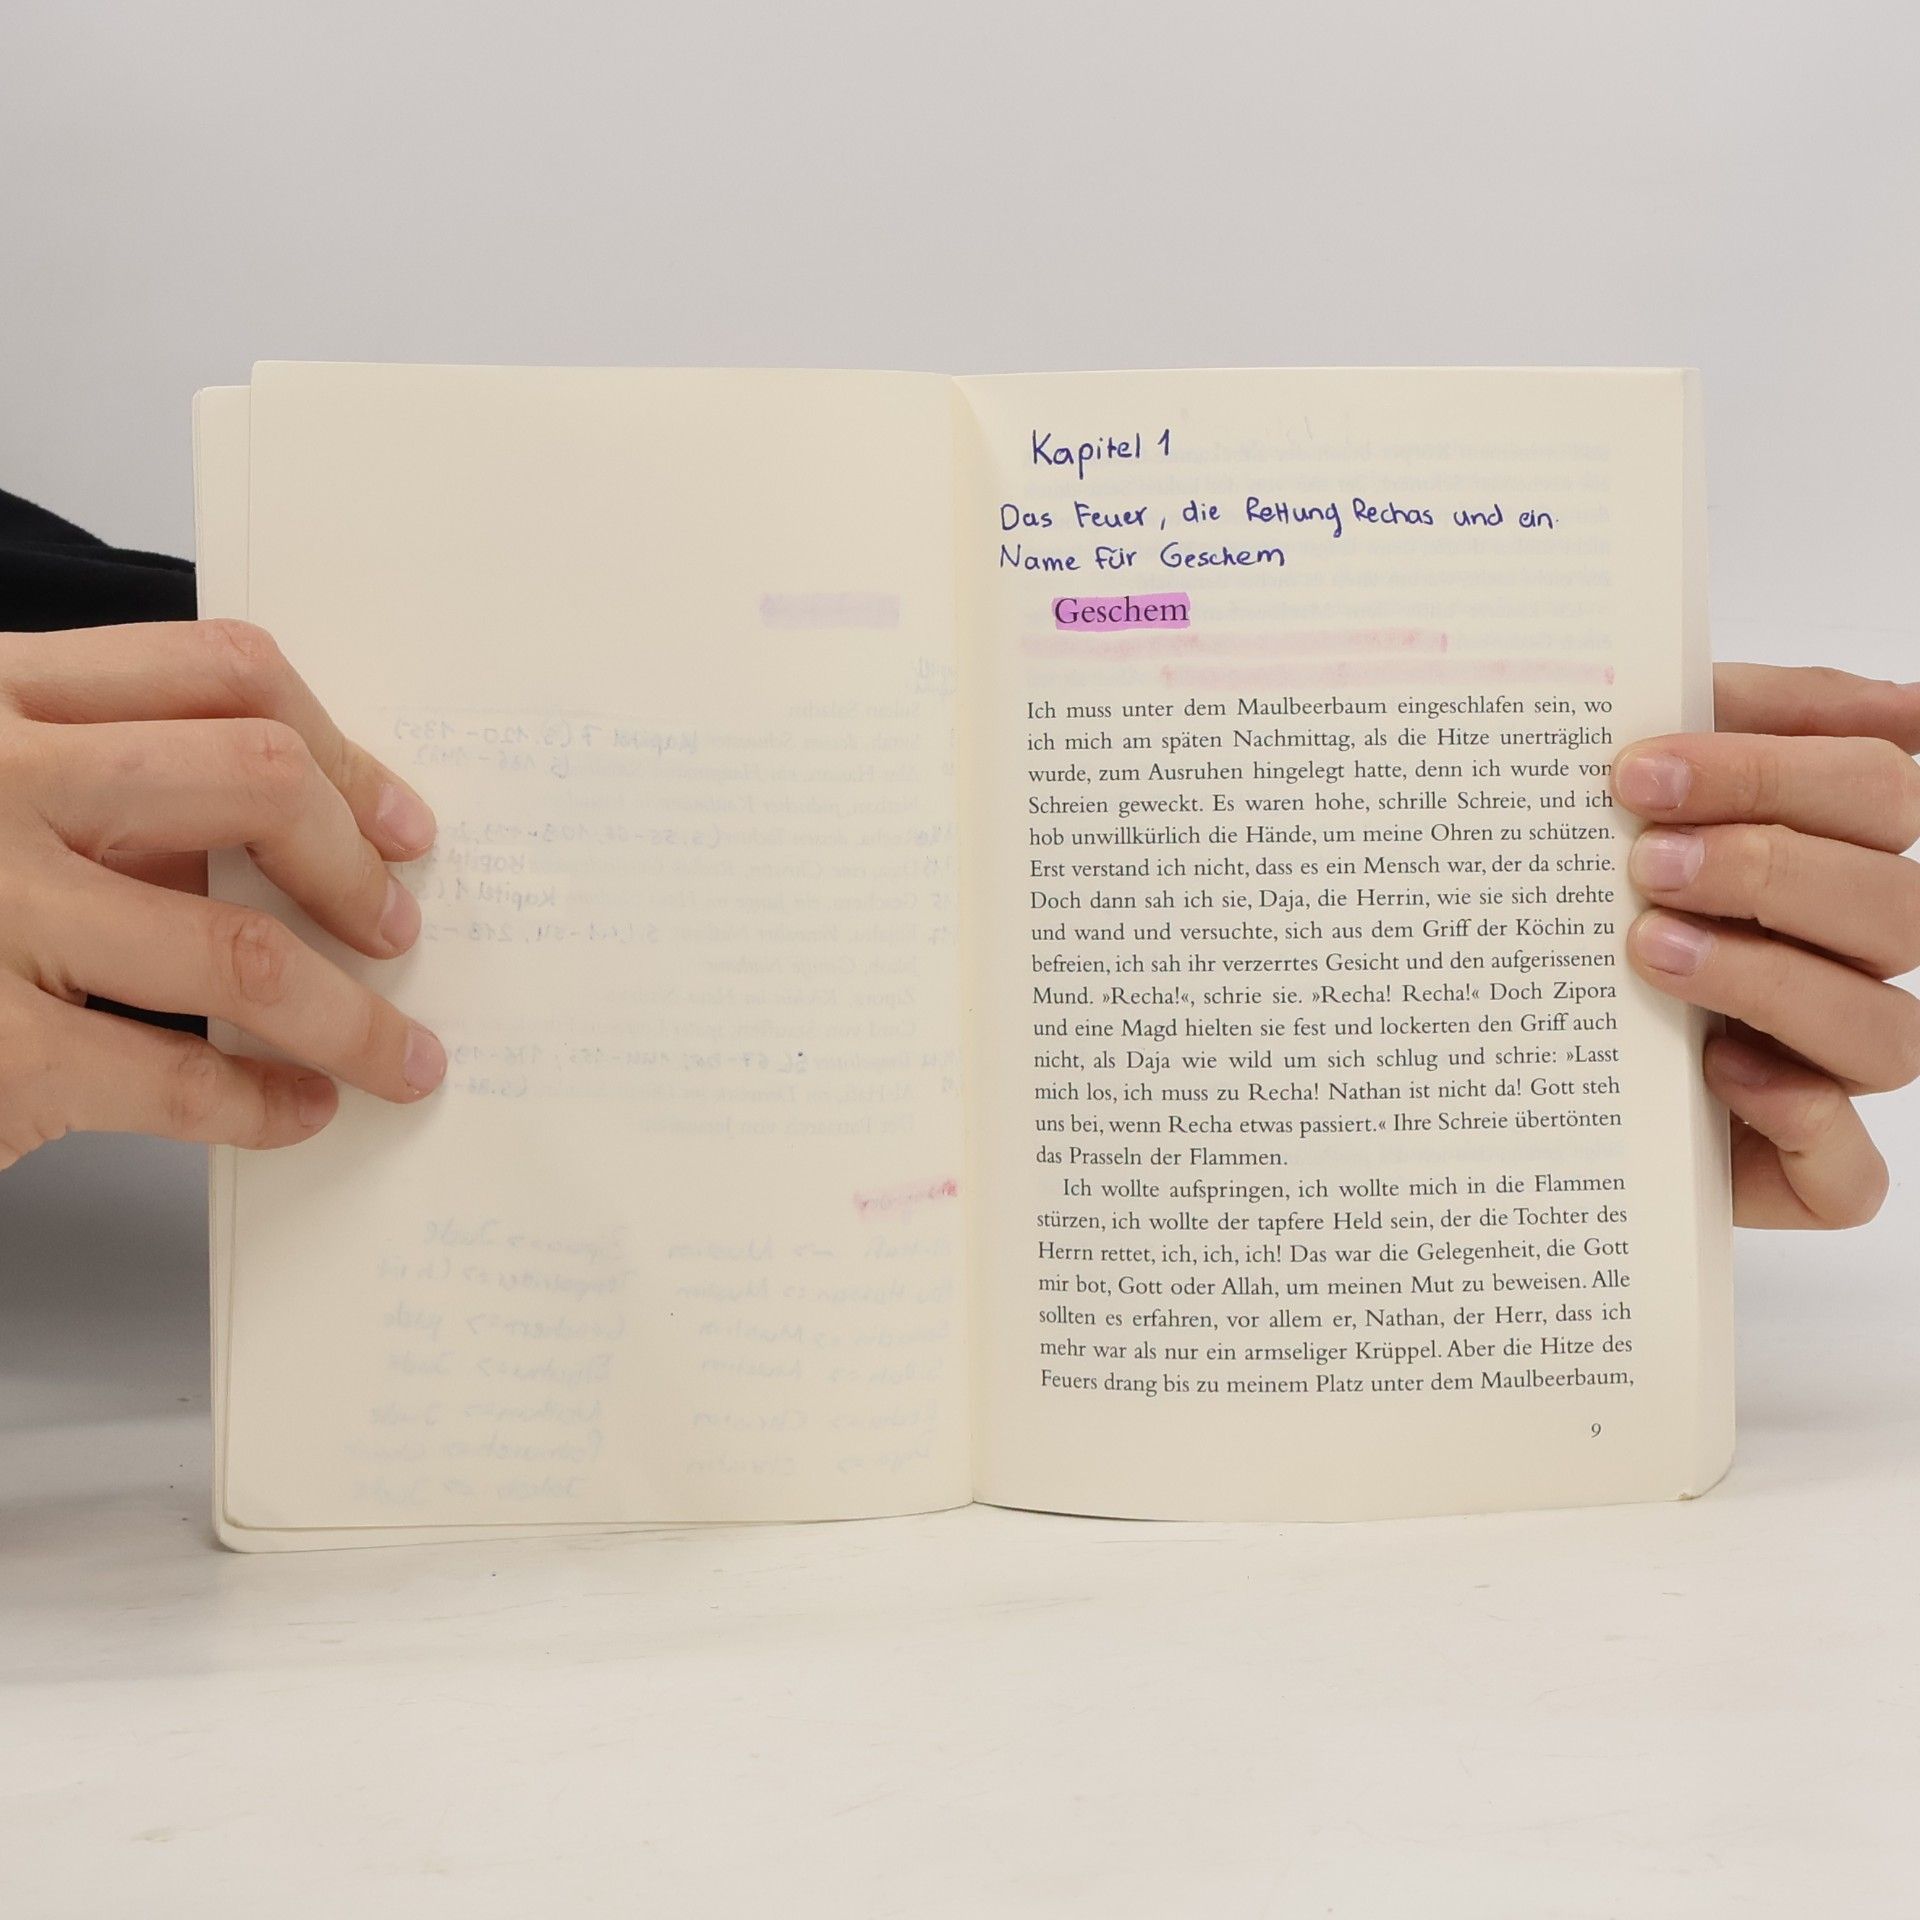 Kapitel 1
Das Feuer, die Rettung Rechas und ein
Name für Geschem
Geschem
Ich muss unter dem Maulbeerbaum eingeschlafen sein, wo
ich mich am späten Nachmittag, als die Hitze unerträglich
wurde, zum Ausruhen hingelegt hatte, denn ich wurde von
Schreien geweckt. Es waren hohe, schrille Schreie, und ich
hob unwillkürlich die Hände, um meine Ohren zu schützen.
Erst verstand ich nicht, dass es ein Mensch war, der da schrie.
Doch dann sah ich sie, Daja, die Herrin, wie sie sich drehte
und wand und versuchte, sich aus dem Griff der Köchin zu
befreien, ich sah ihr verzerrtes Gesicht und den aufgerissenen
Mund. »Recha!«, schrie sie. »Recha! Recha!« Doch Zipora
und eine Magd hielten sie fest und lockerten den Griff auch
nicht, als Daja wie wild um sich schlug und schrie: »Lasst
mich los, ich muss zu Recha! Nathan ist nicht da! Gott steh
uns bei, wenn Recha etwas passiert.« Ihre Schreie übertönten
das Prasseln der Flammen.
Ich wollte aufspringen, ich wollte mich in die Flammen
stürzen, ich wollte der tapfere Held sein, der die Tochter des
Herrn rettet, ich, ich, ich! Das war die Gelegenheit, die Gott
mir bot, Gott oder Allah, um meinen Mut zu beweisen. Alle
sollten es erfahren, vor allem er, Nathan, der Herr, dass ich
mehr war als nur ein armseliger Krüppel. Aber die Hitze des
Feuers drang bis zu meinem Platz unter dem Maulbeerbaum,
9